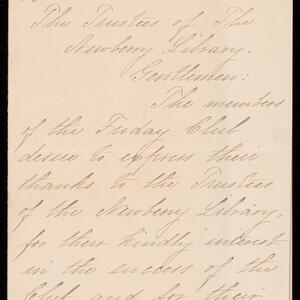 The Trustees of The
Newberry Library.
Gentlemen:
The members
of the Friday Club
desire to express their
thanks to the Trustees
of the Newberry Library,
for their kindly interest
in the success of the
Club and for their